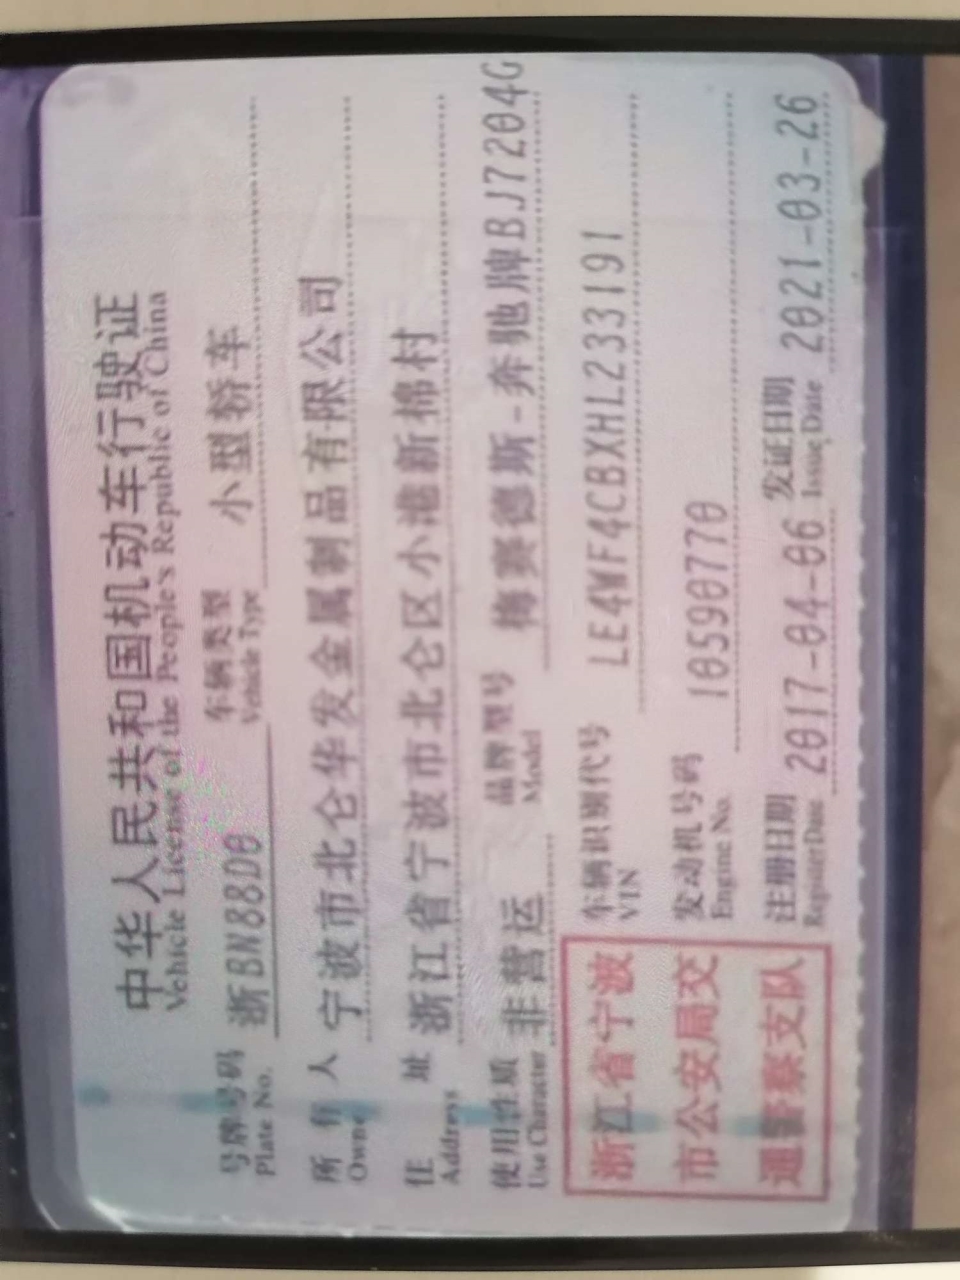 中华人民共和国机动车行驶证
Vehicle License of the People's Republic of China
号牌号码 浙BN88D0 车辆类型 小型轿车
Plate No. Vehicle Type
所有人 宁波市北仑华发金属制品有限公司
Owner
住址 浙江省宁波市北仑区小港新棉村
Address
使用性质 非营运 品牌型号 梅赛德斯-奔驰牌BJ7204G
Use Character Model
车辆识别代号 LE4WF4CBXHL233191
VIN
发动机号码 10590770
Engine No.
注册日期 2017-04-06 发证日期 2021-03-26
Register Date Issue Date
浙江省宁波
市公安局交
通警察支队